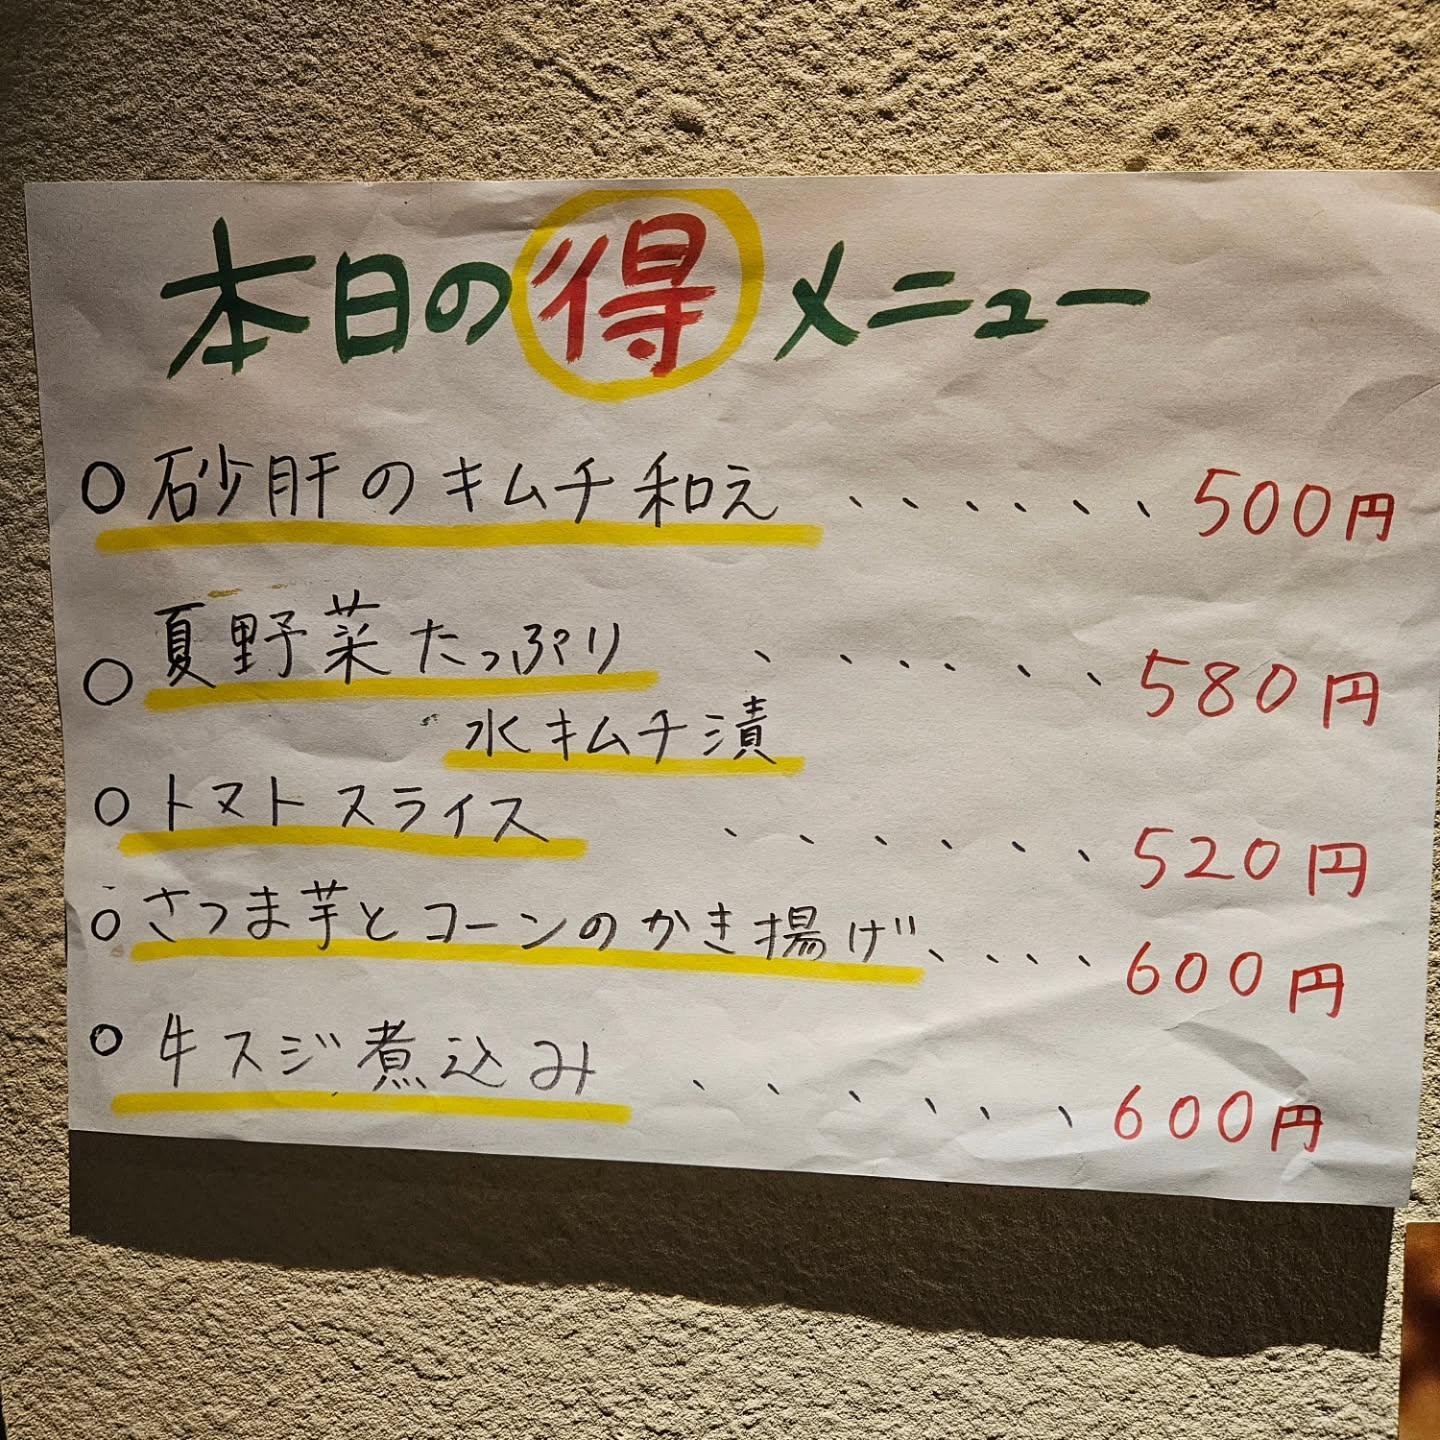 本日の得メニュー
○砂肝のキムチ和え、、、、、、500円
○夏野菜たっぷり、、、、、、、580円
水キムチ漬
○トマトスライス、、、、、、520円
○さつま芋とコーンのかき揚げ、、、、、600円
○牛スジ煮込み、、、、、、600円